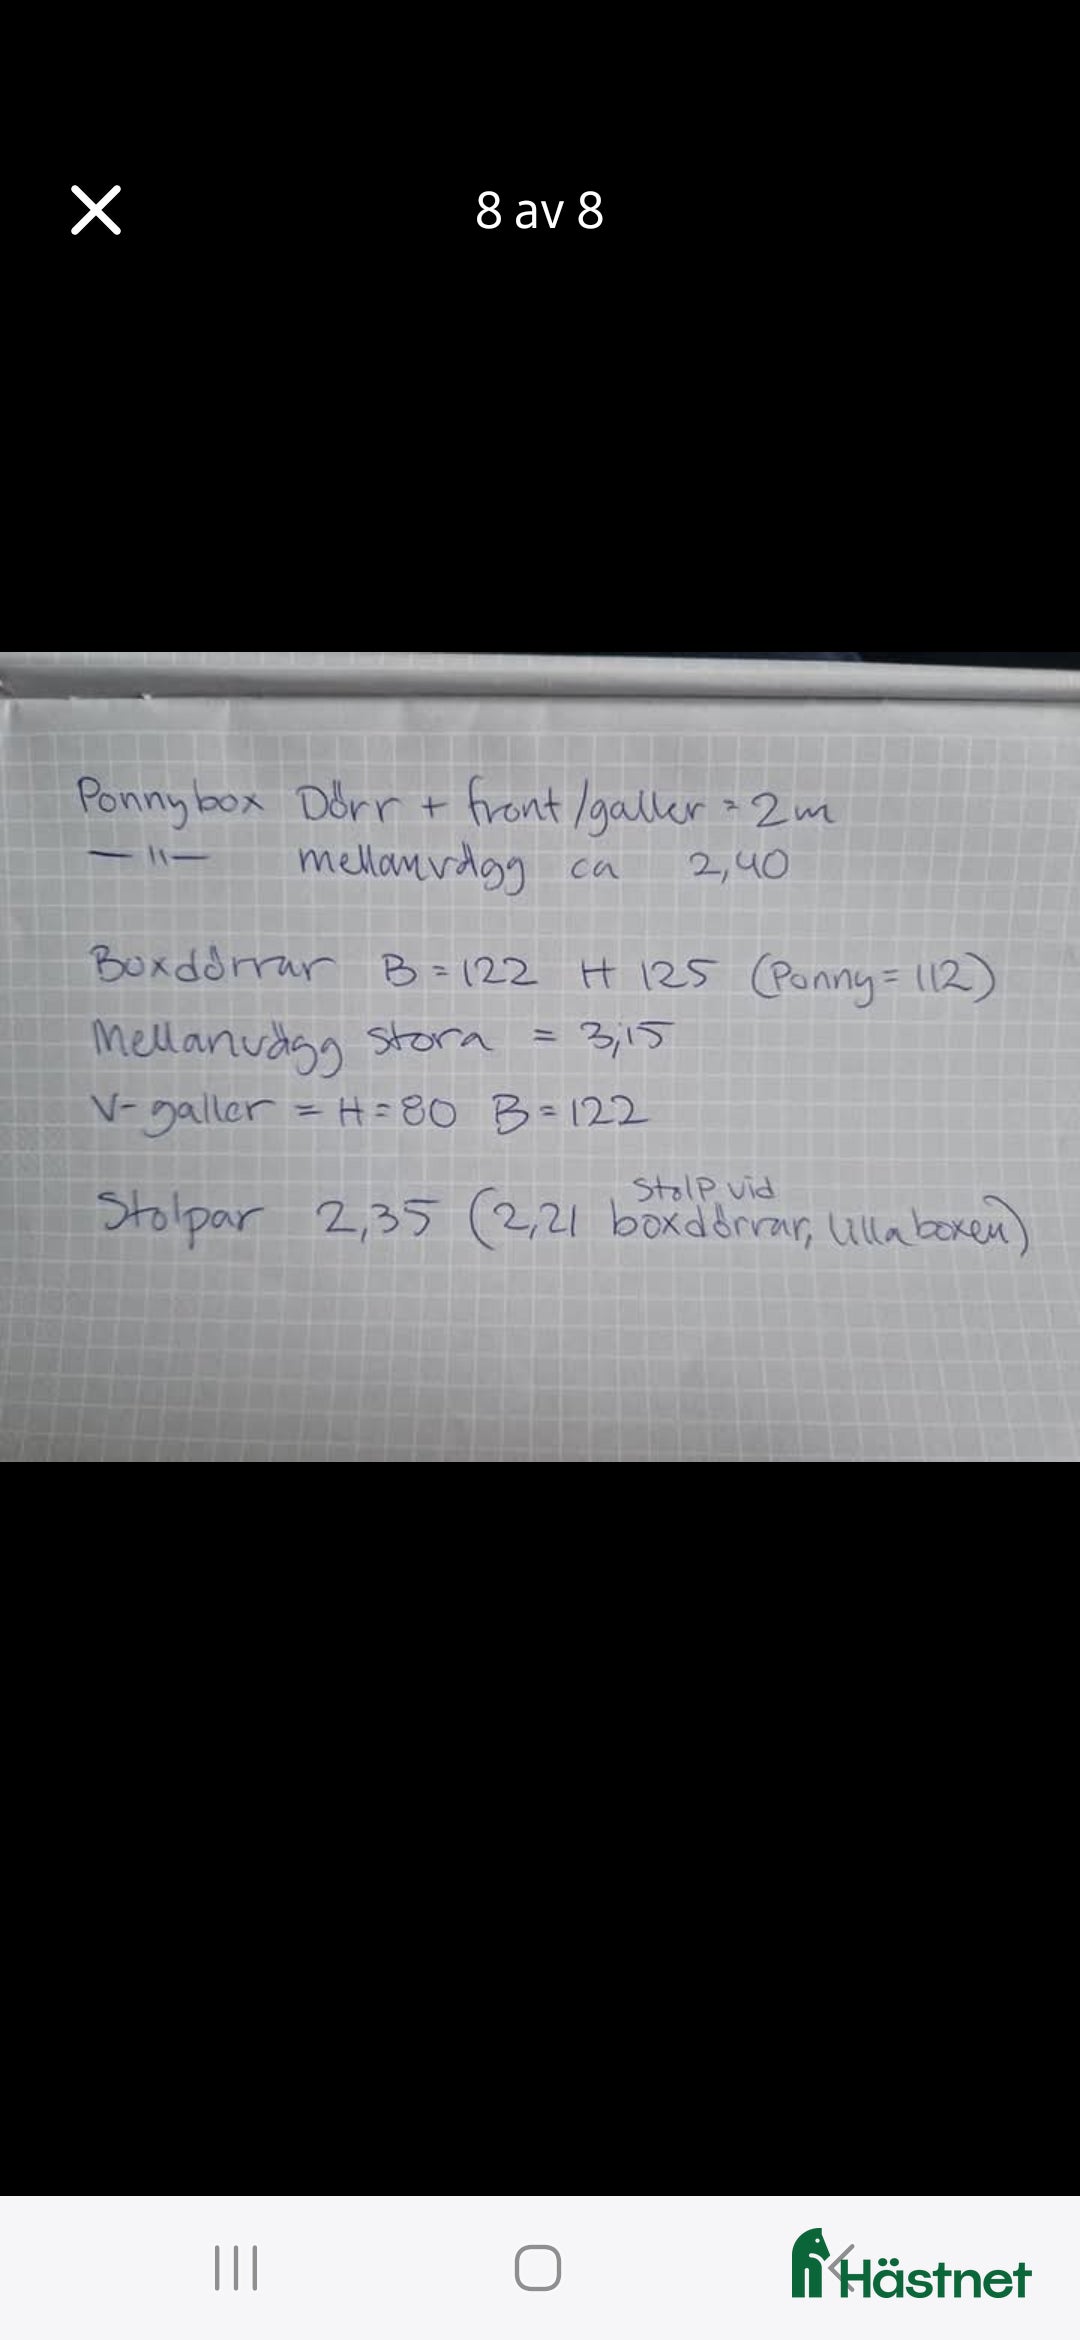 8 av 8
Ponnybox Dörr + front/galler = 2m
—"— mellanvägg ca 2,40
Boxdörrar B=122 H 125 (Ponny=112)
Mellanvägg stora = 3,15
V-galler = H=80 B=122
Stolpar 2,35 (2,21 stolp vid boxdörrar, lilla boxen)
Hästnet